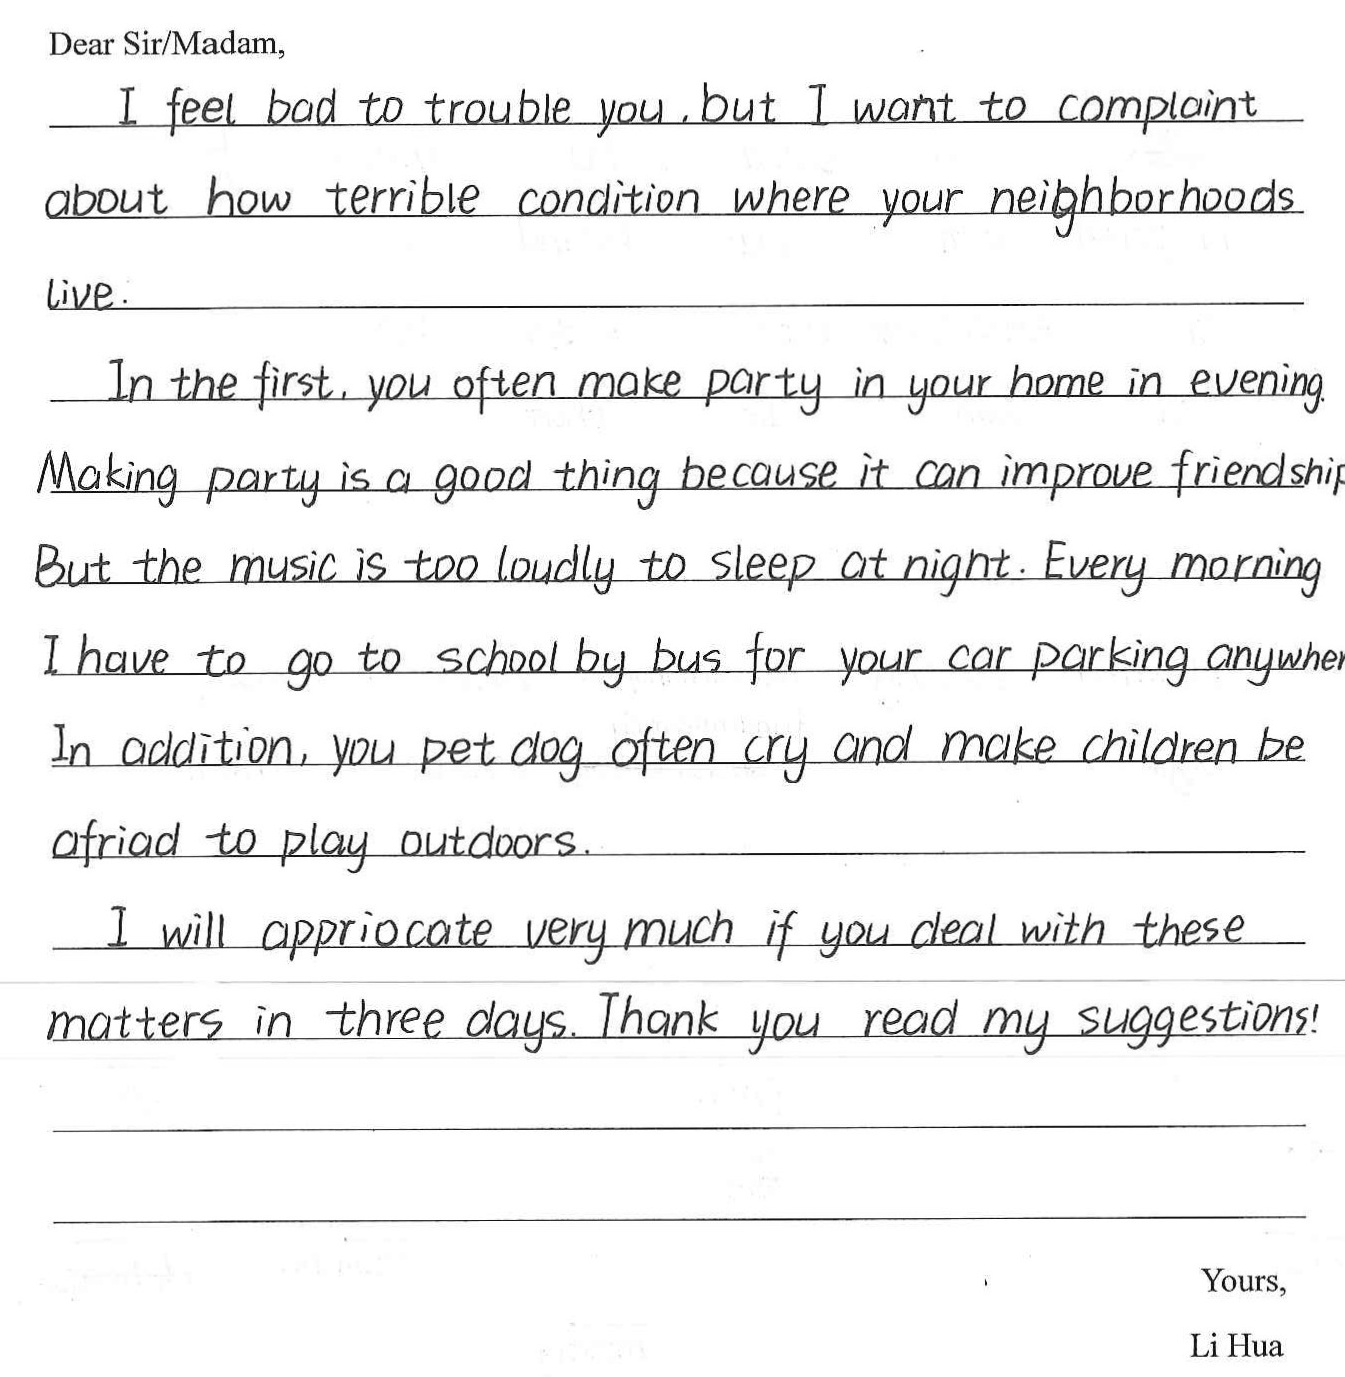 Dear Sir/Madam,
I feel bad to trouble you, but I want to complaint
about how terrible condition where your neighborhoods
live.
In the first, you often make party in your home in evening.
Making party is a good thing because it can improve friendship
But the music is too loudly to sleep at night. Every morning
I have to go to school by bus for your car parking anywher
In addition, you pet dog often cry and make children be
afriad to play outdoors.
I will appriocate very much if you deal with these
matters in three days. Thank you read my suggestions!
Yours,
Li Hua